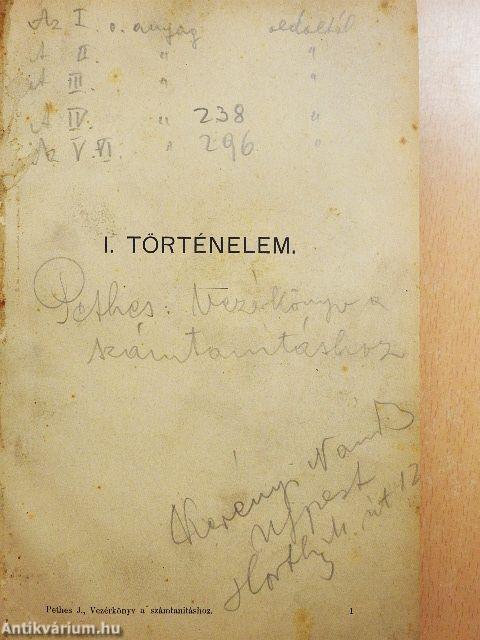 Az I. o. anyag oldaltól
A II. " "
A III. " "
A IV. " 238 "
Az V. VI. " 296 "
I. TÖRTÉNELEM.
Pethes: Vezérkönyv a
számtanitáshoz
Kerényi Nánd
Ujpest
Horthy M. út 12
Pethes J., Vezérkönyv a számtanitáshoz. 1
Antikvárium.hu